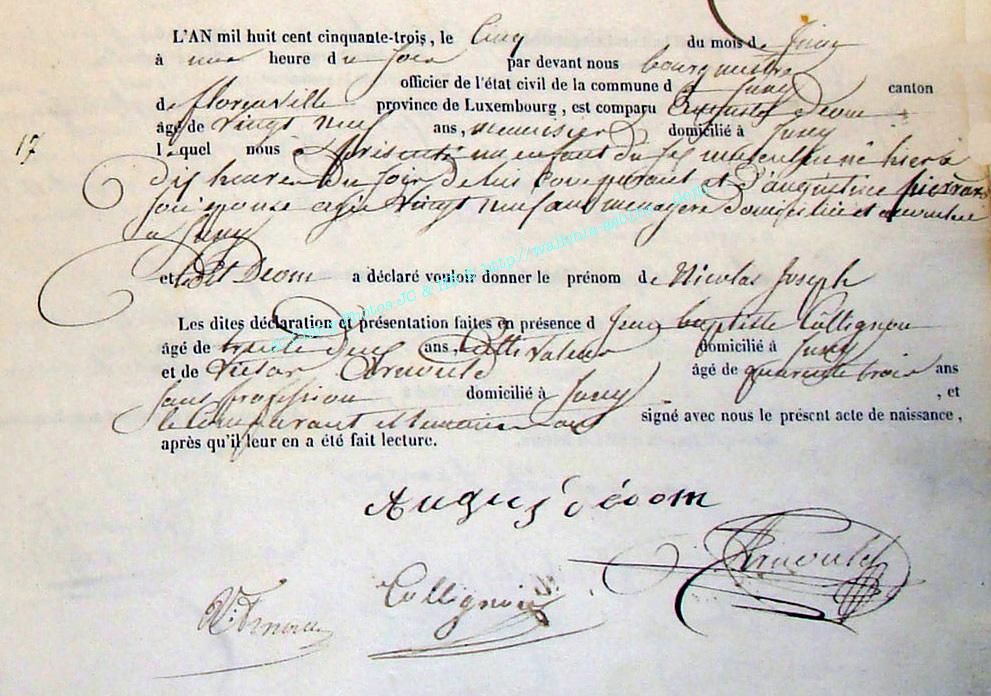 L'AN mil huit cent cinquante-trois, le Cinq du mois de Juin
à une heure du soir par devant nous bourgmestre
officier de l'état civil de la commune d e Jusey canton
de florenville province de Luxembourg, est comparu Auguste Deom
âgé de vingt neuf ans, menuisier domicilié à Jusey
17
lequel nous a présenté un enfant du sexe masculin né hier à
dix heures du soir de lui comparant et d'augustine pierrard
son épouse agée vingt neuf ans menagère domiciliée et
à Jusey
et ledit Deom a déclaré vouloir donner le prénom de Nicolas Joseph
Les dites déclaration et présentation faites en présence d Jean baptiste Collignon
âgé de trente deux ans, cultivateur domicilié à Jusey
et de Victor Arnould âgé de quarante trois ans
sans profession domicilié à Jusey , et
le comparant et temoins ont signé avec nous le présent acte de naissance,
après qu'il leur en a été fait lecture.
August déom
Arnould
Collignon
V. Arnould
Photos JC & http://wallonia-asbl